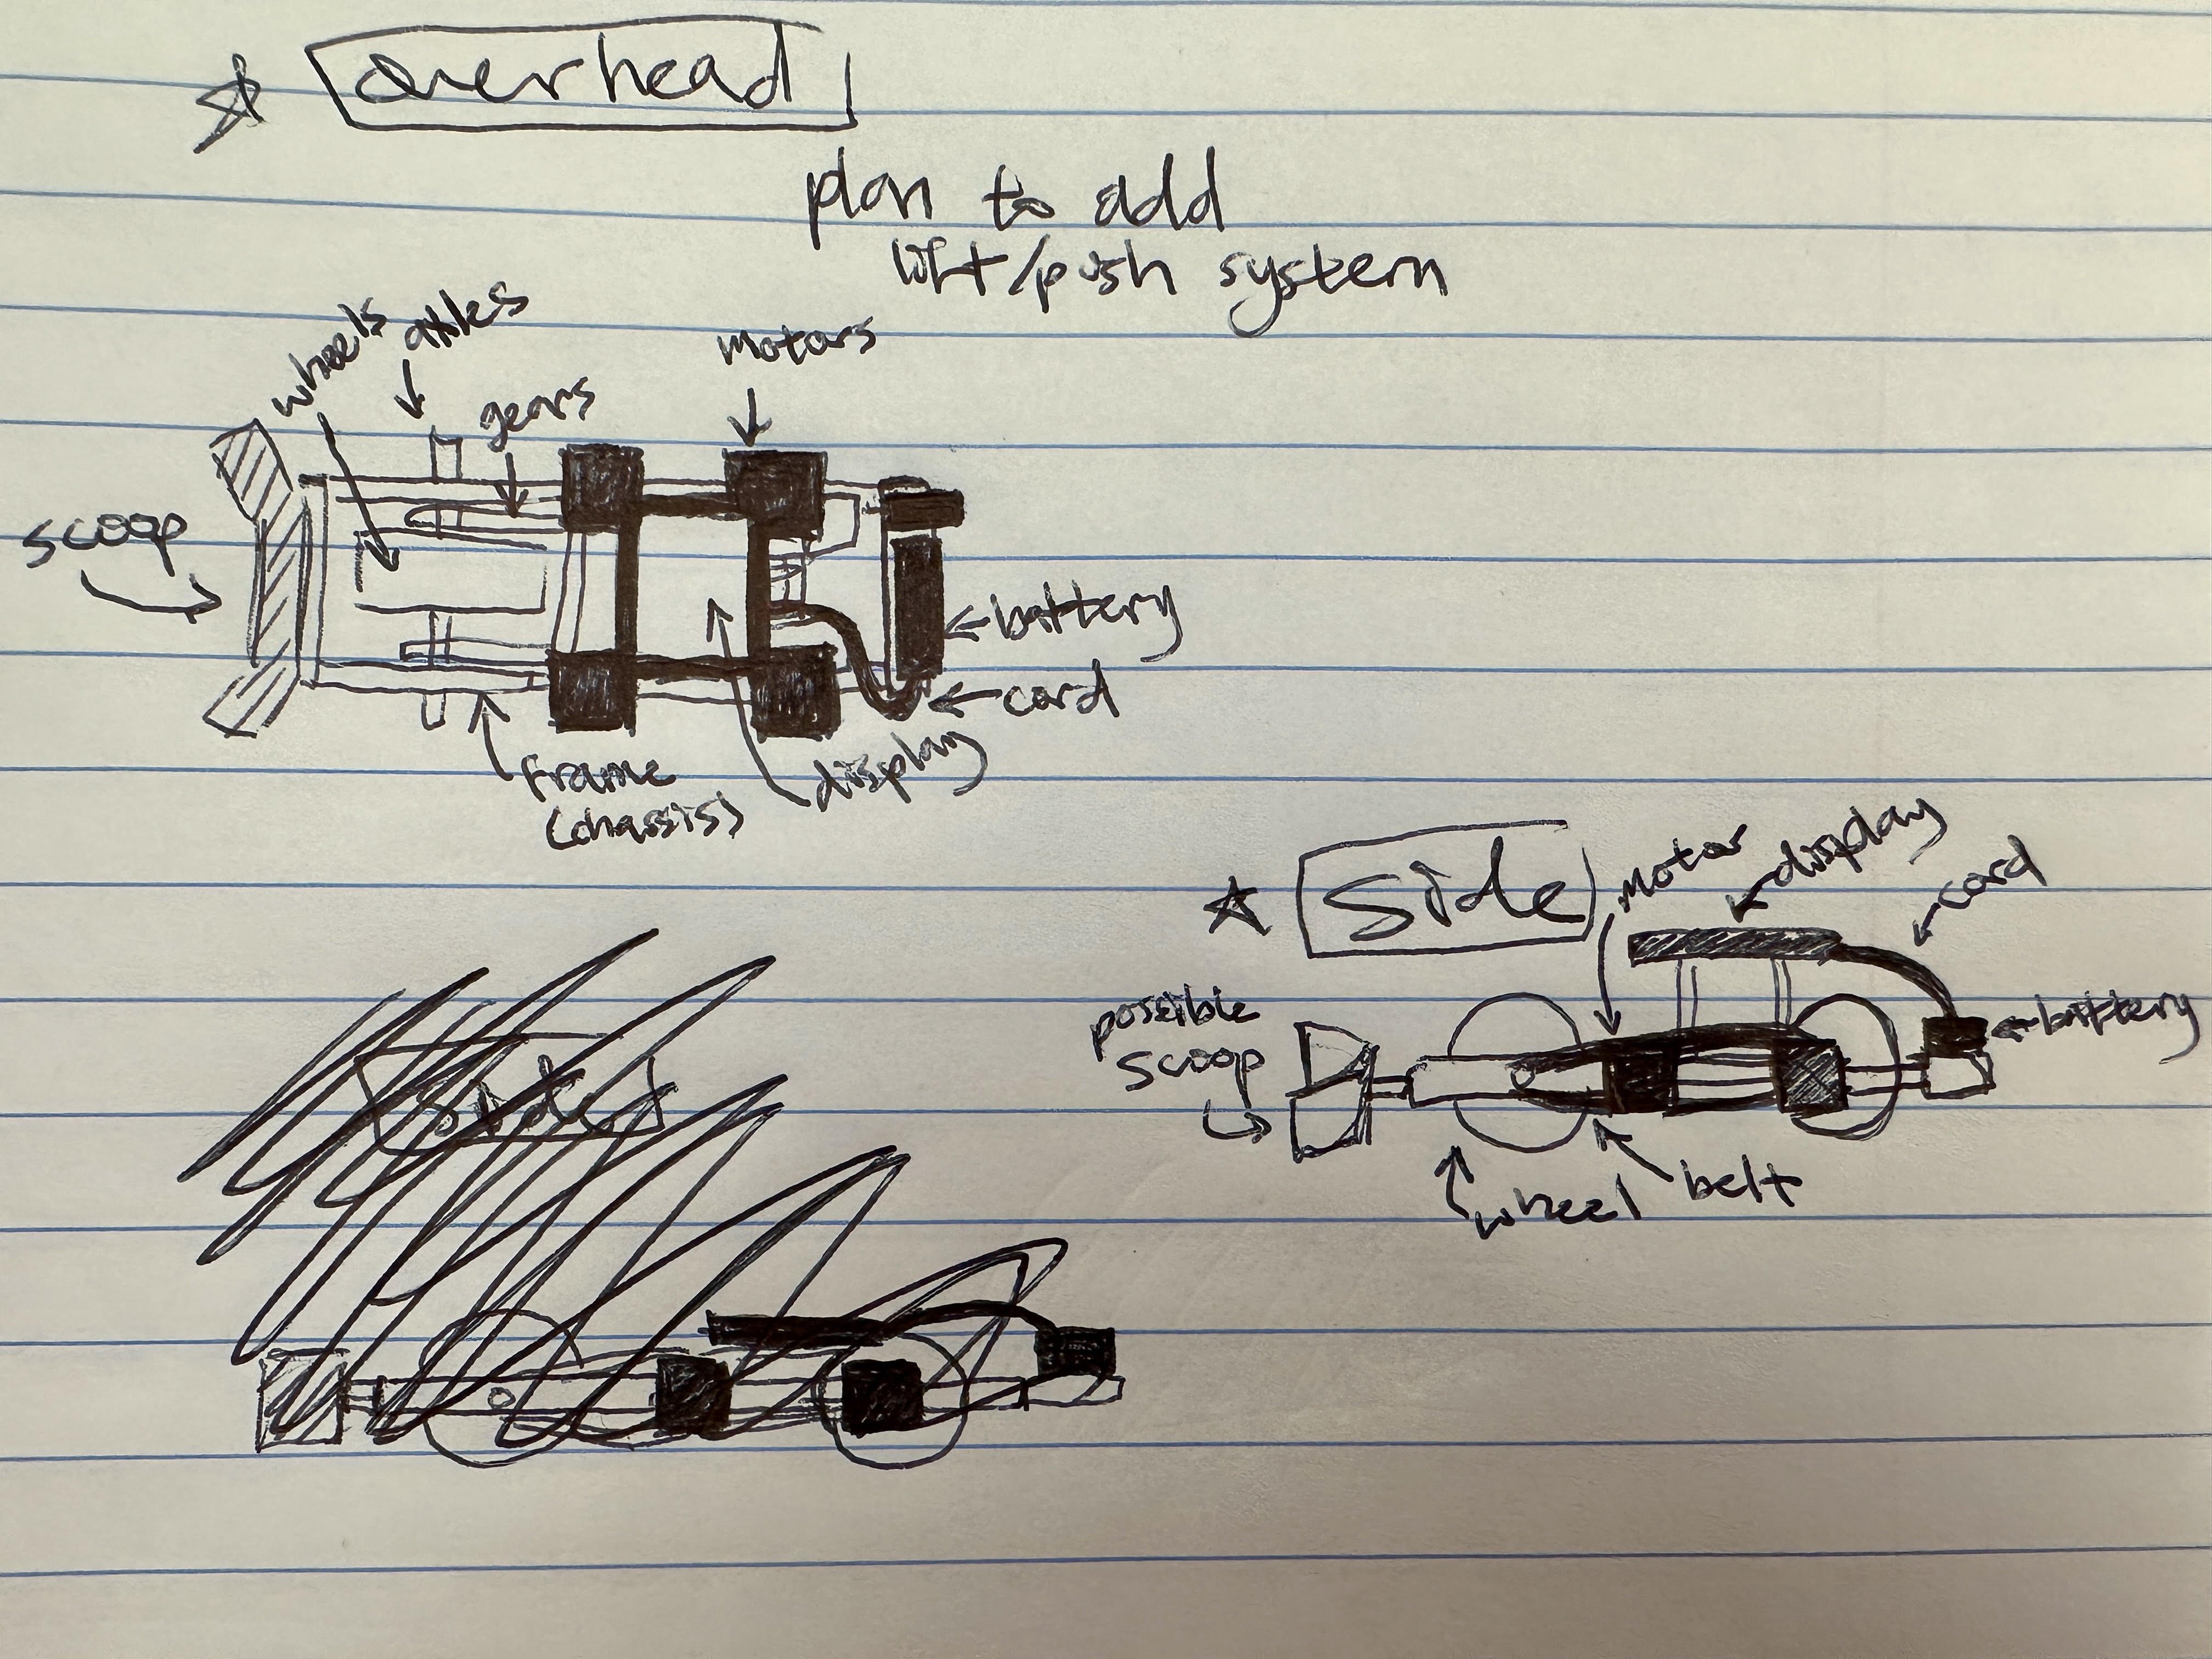 overhead
plan to add
lift/push system
wheels
axles
gears
motors
scoop
battery
cord
display
frame
(chassis)
side
motor
display
cord
battery
possible
scoop
wheel
belt
side